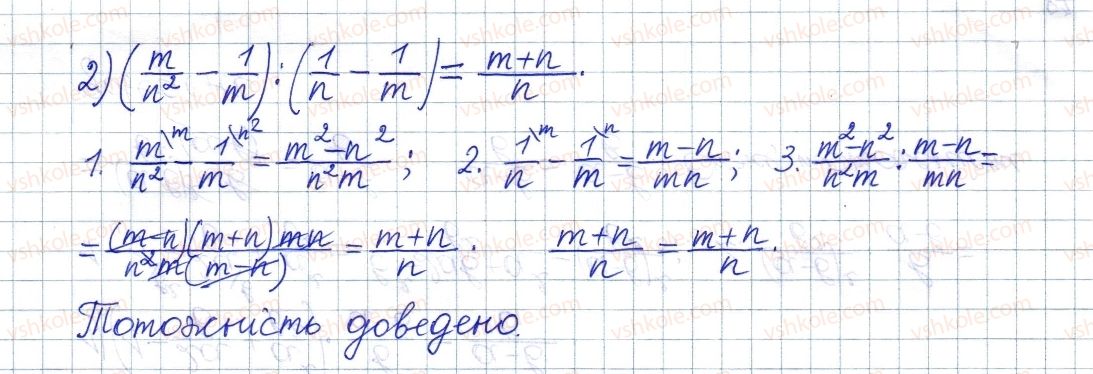 2) (m/n² − 1/m) : (1/n − 1/m) = (m+n)/n.
1. m\ᵐ/n² − 1\ⁿ²/m = (m²−n²)/(n²m); 2. 1\ᵐ/n − 1\ⁿ/m = (m−n)/(mn); 3. (m²−n²)/(n²m) : (m−n)/(mn) =
= ((m−n)(m+n)mn)/(n²m(m−n)) = (m+n)/n. (m+n)/n = (m+n)/n.
Тотожність доведено.